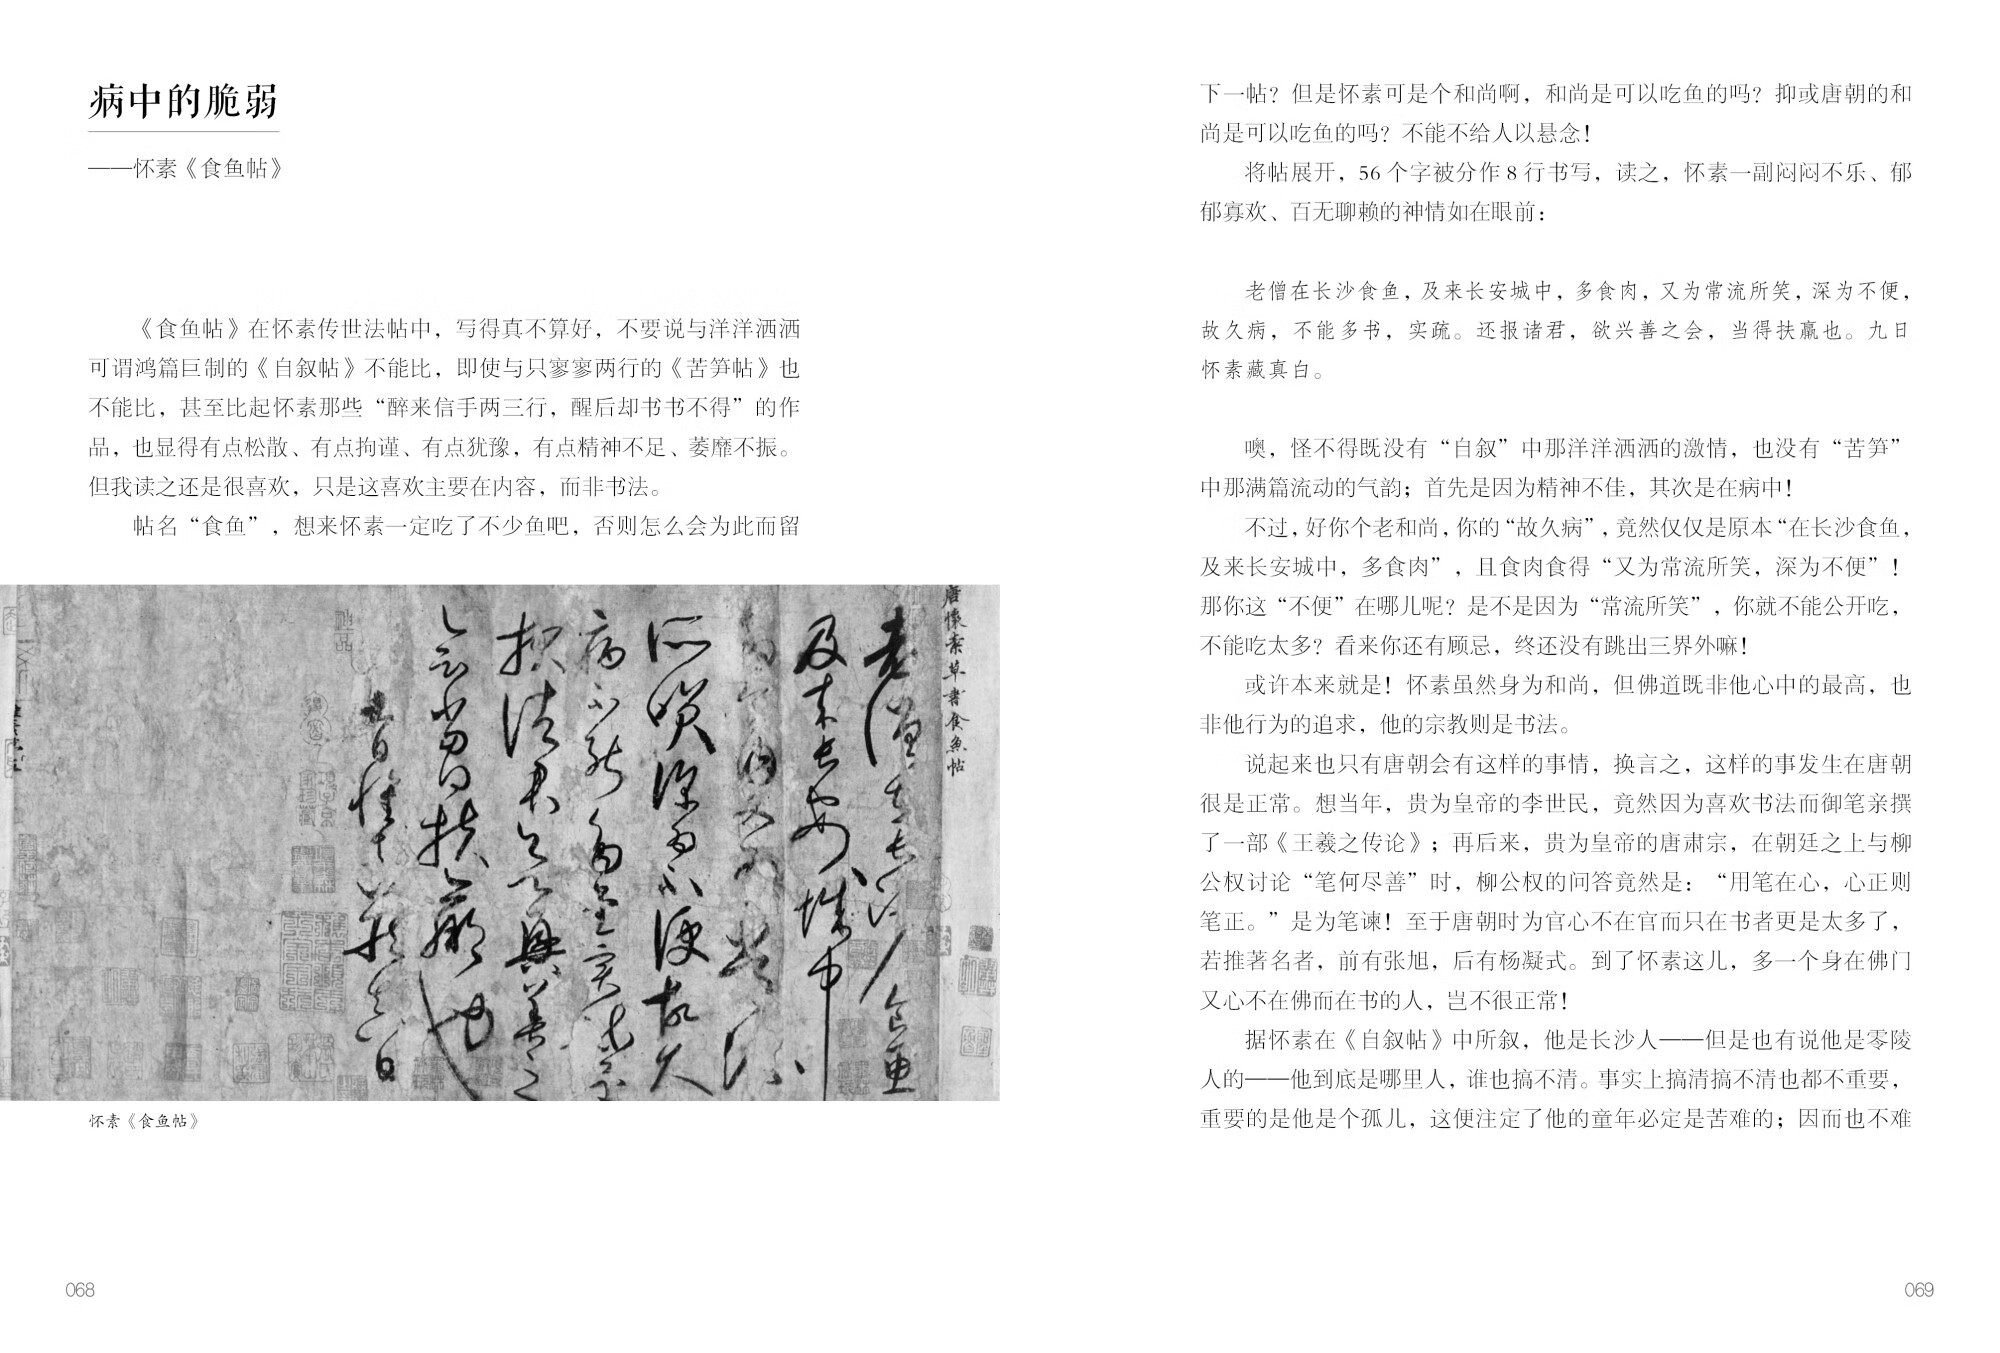 病中的脆弱
——怀素《食鱼帖》
《食鱼帖》在怀素传世法帖中，写得真不算好，不要说与洋洋洒洒
可谓鸿篇巨制的《自叙帖》不能比，即使与只寥寥两行的《苦笋帖》也
不能比，甚至比起怀素那些“醉来信手两三行，醒后却书书不得”的作
品，也显得有点松散、有点拘谨、有点犹豫，有点精神不足、萎靡不振。
但我读之还是很喜欢，只是这喜欢主要在内容，而非书法。
帖名“食鱼”，想来怀素一定吃了不少鱼吧，否则怎么会为此而留
唐懷素草書食魚帖
老僧在长沙食鱼
及来长安城中
多食肉又为常流
所笑深为不便故久
病不能多书实疏
报诸君欲兴善之
会当得扶羸也
九日怀素藏真白
怀素《食鱼帖》
068
下一帖？但是怀素可是个和尚啊，和尚是可以吃鱼的吗？抑或唐朝的和
尚是可以吃鱼的吗？不能不给人以悬念！
将帖展开，56个字被分作8行书写，读之，怀素一副闷闷不乐、郁
郁寡欢、百无聊赖的神情如在眼前：
老僧在长沙食鱼，及来长安城中，多食肉，又为常流所笑，深为不便，
故久病，不能多书，实疏。还报诸君，欲兴善之会，当得扶羸也。九日
怀素藏真白。
噢，怪不得既没有“自叙”中那洋洋洒洒的激情，也没有“苦笋”
中那满篇流动的气韵；首先是因为精神不佳，其次是在病中！
不过，好你个老和尚，你的“故久病”，竟然仅仅是原本“在长沙食鱼，
及来长安城中，多食肉”，且食肉食得“又为常流所笑，深为不便”！
那你这“不便”在哪儿呢？是不是因为“常流所笑”，你就不能公开吃，
不能吃太多？看来你还有顾忌，终还没有跳出三界外嘛！
或许本来就是！怀素虽然身为和尚，但佛道既非他心中的最高，也
非他行为的追求，他的宗教则是书法。
说起来也只有唐朝会有这样的事情，换言之，这样的事发生在唐朝
很是正常。想当年，贵为皇帝的李世民，竟然因为喜欢书法而御笔亲撰
了一部《王羲之传论》；再后来，贵为皇帝的唐肃宗，在朝廷之上与柳
公权讨论“笔何尽善”时，柳公权的问答竟然是：“用笔在心，心正则
笔正。”是为笔谏！至于唐朝时为官心不在官而只在书者更是太多了，
若推著名者，前有张旭，后有杨凝式。到了怀素这儿，多一个身在佛门
又心不在佛而在书的人，岂不很正常！
据怀素在《自叙帖》中所叙，他是长沙人——但是也有说他是零陵
人的——他到底是哪里人，谁也搞不清。事实上搞清搞不清也都不重要，
重要的是他是个孤儿，这便注定了他的童年必定是苦难的；因而也不难
069